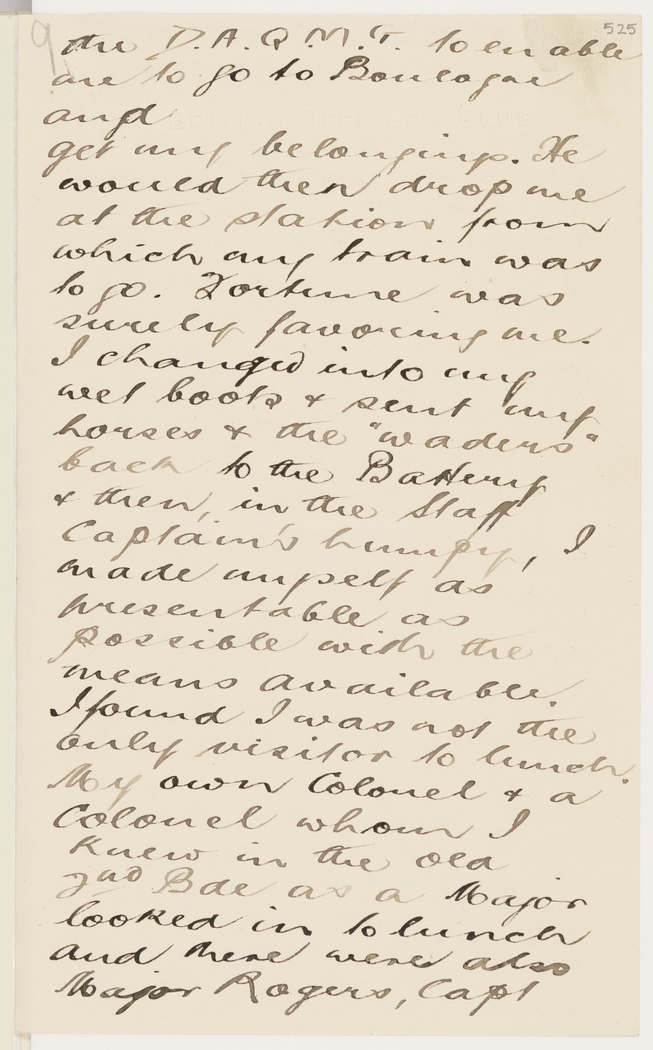 525
9
the D.A.Q.M.G. to enable
me to go to Boulogne
and
get my belongings. He
would then drop me
at the station from
which my train was
to go. Fortune was
surely favoring me.
I changed into my
wet boots & sent my
horses & the "waders"
back to the Battery
& then, in the Staff
Captain's humpy, I
made myself as
presentable as
possible with the
means available.
I found I was not the
only visitor to lunch.
My own Colonel & a
Colonel whom I
knew in the old
2nd Bde as a Major
looked in to lunch
and there were also
Major Rogers, Capt